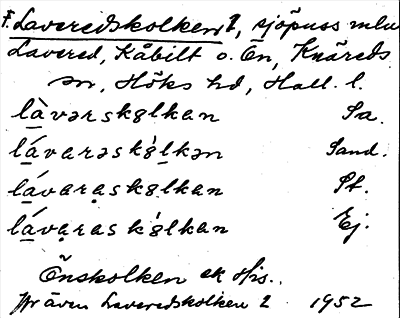 F. Laveredskolken 1, sjöpuss mlu
Lavered, Kåbilt o. Ön, Knäreds
sn, Höks hd, Hall. l.
làvərskɵlkan Sa.
lávarəskɵ́lkən Sand.
lávaraskɵlkan St.
lávaraskɵ́lkan Ej.
Önskolken ek His.
Jfr även Laveredskolken 2 1952